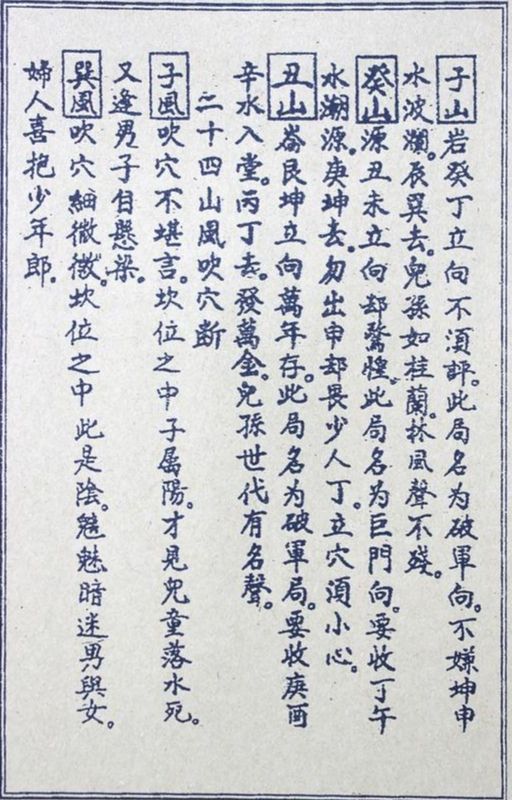 子山岩癸丁立向不湏評。此局名为破軍向。不嫌坤申
水波瀾。辰巽去。兒孫如桂蘭。林風聲不殘。
癸山源丑未立向却驚惶。此局名为巨門向。要收丁午
水潮源。庚坤去。勿出申却畏少人丁。立穴湏小心。
丑山崙艮坤立向萬年存。此局名为破軍局。要收庚酉
辛水入堂。丙丁去。發萬金。兒孫世代有名聲。
二十四山風吹穴断
子風吹穴不堪言。坎位之中子属陽。才見兒童落水死。
又逢男子自懸梁。
巽風吹穴細微微。坎位之中此是陰。魑魅暗迷男與女。
婦人喜抱少年郎。